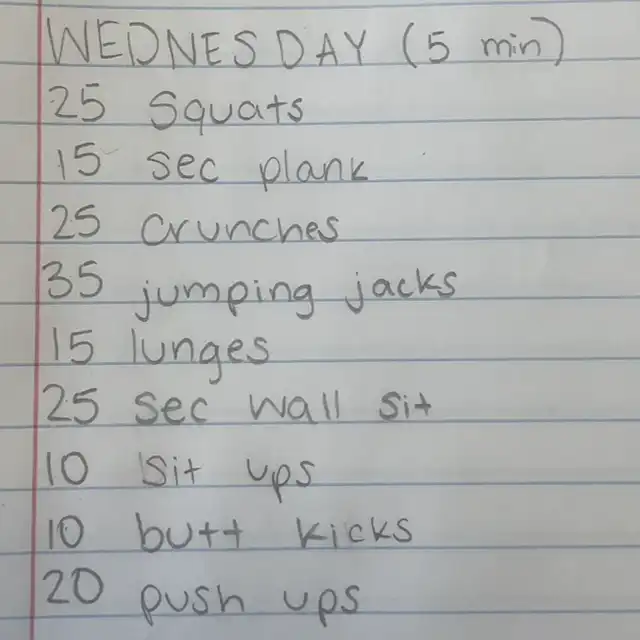 WEDNESDAY (5 min)
25 Squats
15 sec plank
25 crunches
35 jumping jacks
15 lunges
25 sec wall sit
10 sit ups
10 butt kicks
20 push ups